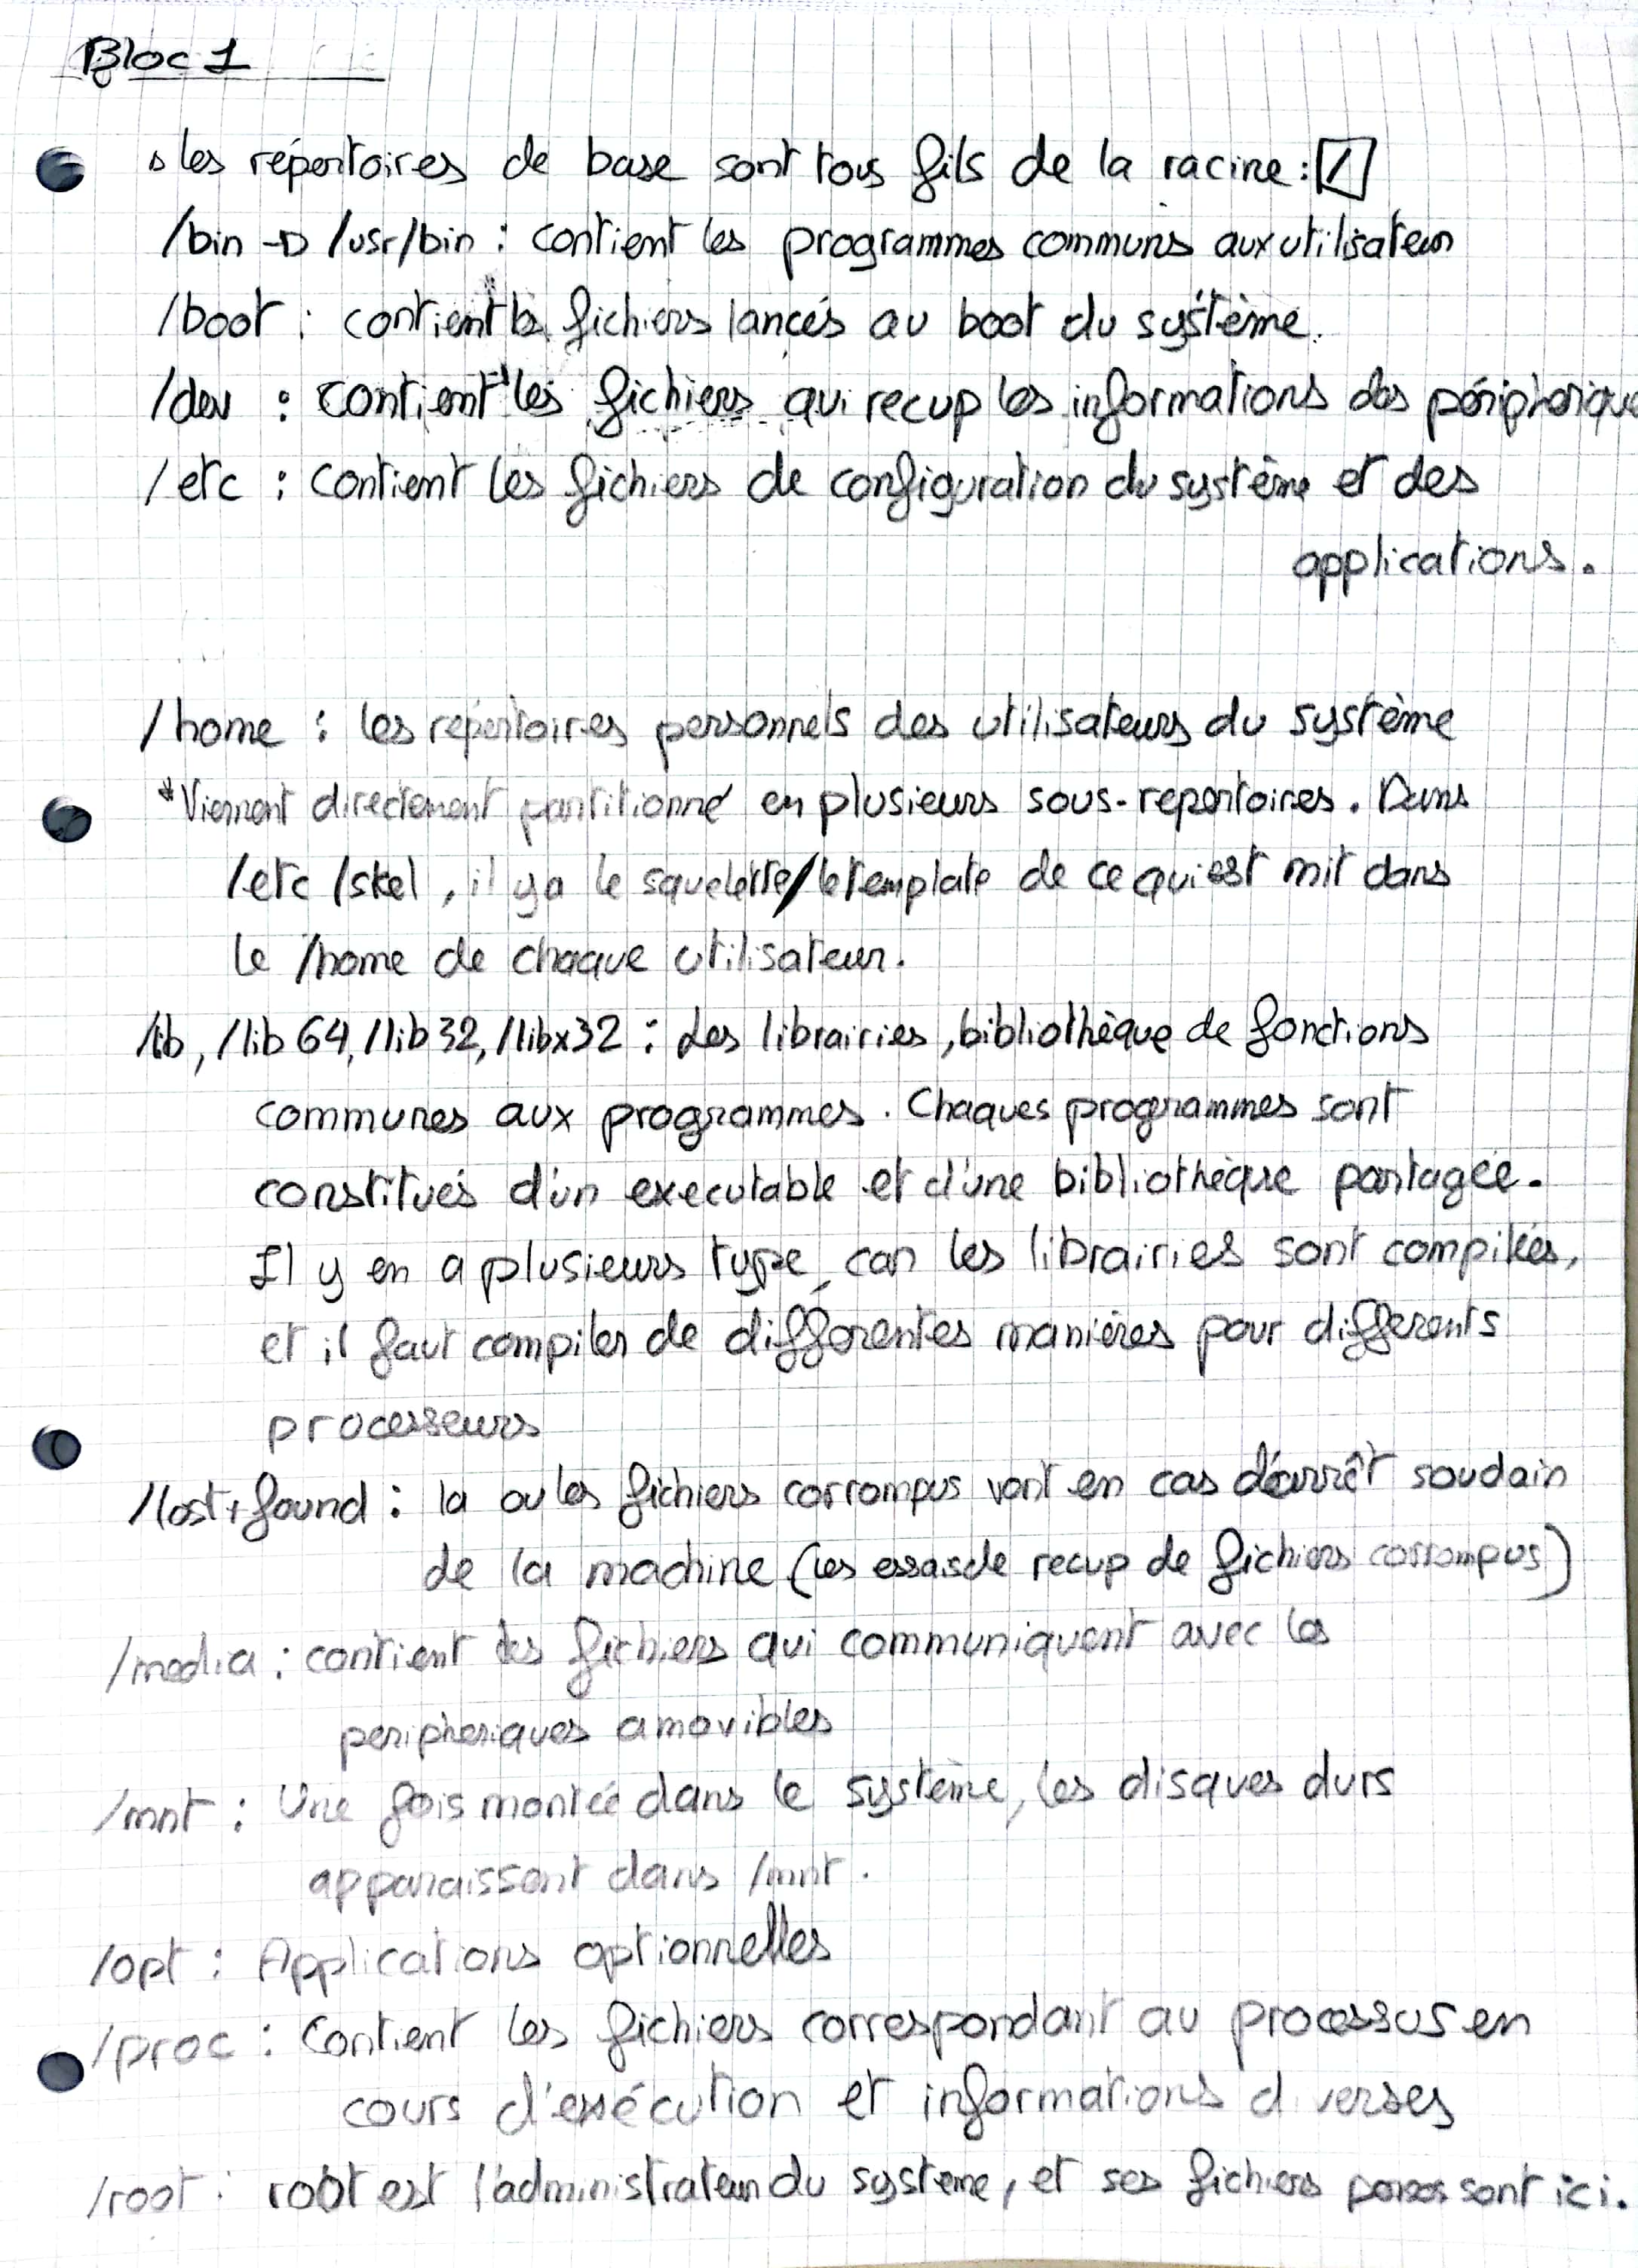 Bloc 1
▷ les répertoires de base sont tous fils de la racine : /
/bin -> /usr/bin : contient les programmes communs aux utilisateurs
/boot : contient les fichiers lancés au boot du système.
/dev : contient les fichiers qui recup les informations des périphérique
/etc : contient les fichiers de configuration du système et des
applications.
/home : les repertoires personnels des utilisateurs du système
*Viennent directement partitionné en plusieurs sous-repertoires. Dans
/etc /skel, il y a le squelette/le template de ce qui est mit dans
le /home de chaque utilisateur.
/lib, /lib 64, /lib 32, /libx32 : Les librairies, bibliothèque de fonctions
communes aux programmes. Chaques programmes sont
constitués d'un executable et d'une bibliothèque partagée.
Il y en a plusieurs type, car les librairies sont compilés,
et il faut compiler de différentes manières pour differents
processeurs
/lost+found : la ou les fichiers corrompus vont en cas d'arrêt soudain
de la machine (les essais de recup de fichiers corrompus)
/media : contient les fichiers qui communiquent avec les
peripheriques amovibles
/mnt : Une fois montée dans le système, les disques durs
apparaissent dans /mnt.
/opt : Applications optionnelles
/proc : Contient les fichiers correspondant au processus en
cours d'exécution et informations diverses
/root : root est l'administrateur du systeme, et ses fichiers persos sont ici.